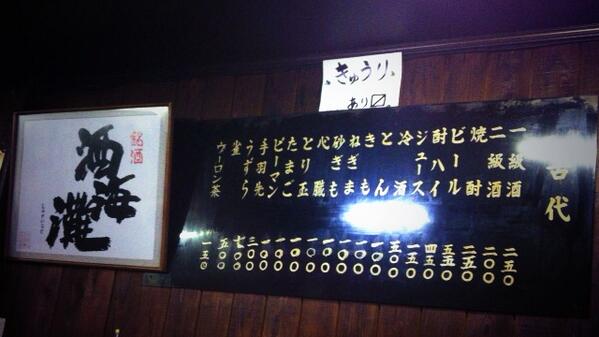 きゅうり
あり〼
銘酒
酒海灘
代
一級酒 二五〇
二級酒 二〇〇
焼酎 二五〇
ビール 五五〇
酎ハイ 四五〇
ジュース 一五〇
冷酒
とん
きも 一〇〇
ねぎま 一〇〇
砂ぎも 一〇〇
心臓 一〇〇
とり玉 一〇〇
たまご 一〇〇
ピーマン 一〇〇
手羽先
うずら
雀
ウーロン茶 一五〇